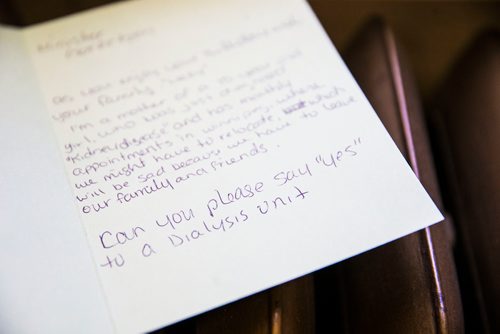 Minister
as you enjoy your
your family
I'm a mother of a 10 year old
girl, who was just diagnosed
kidney disease and has monthly
appointments in winnipeg, where
we might have to relocate, which
will be sad because we have to leave
our family and friends.
Can you please say "yes"
to a Dialysis unit